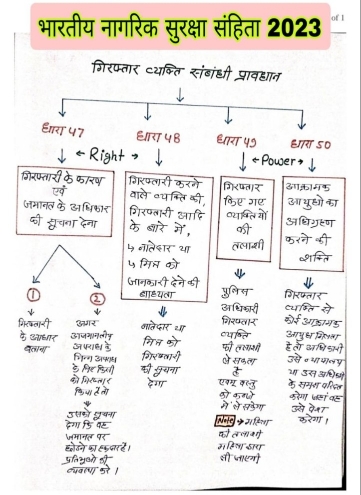 भारतीय नागरिक सुरक्षा संहिता 2023
of 1
गिरफ्तार व्यक्ति संबंधी प्रावधान
धारा 47
धारा 48
धारा 49
धारा 50
← Right →
← Power →
गिरफ्तारी के कारण
एवं
जमानत के अधिकार
की सूचना देना
गिरफ्तारी करने
वाले व्यक्ति की,
गिरफ्तारी आदि
के बारे में,
↳ नातेदार या
↳ मित्र को
जानकारी देने की
बाध्यता
गिरफ्तार
किए गए
व्यक्तियों
की
तलाशी
आक्रामक
आयुधों का
अधिग्रहण
करने की
शक्ति
1
2
गिरफ्तारी
के आधार
बताना
अगर
अजमानतीय
अपराध के
भिन्न अपराध
के लिए किसी
को गिरफ्तार
किया है तो
उसको सूचना
देगा कि वह
जमानत पर
छोडने का हकदार है।
प्रतिभुओ की
व्यवस्था करे।
नातेदार या
मित्र को
गिरफ्तारी
की सूचना
देगा
पुलिस
अधिकारी
गिरफ्तार
व्यक्ति
की तलाशी
ले सकता
है
एवम् वस्तु
को कब्जे
में ले सकेगा
Note → महिला
की तलाशी
महिला द्वारा
ली जाएगी
गिरफ्तार
व्यक्ति से
कोई आक्रामक
आयुध मिलता
है तो अधिकारी
उसे न्यायालय
या उस अधिकारी
के समक्ष परिदत्त
करेगा जहां वह
उसे पेश
करेगा।